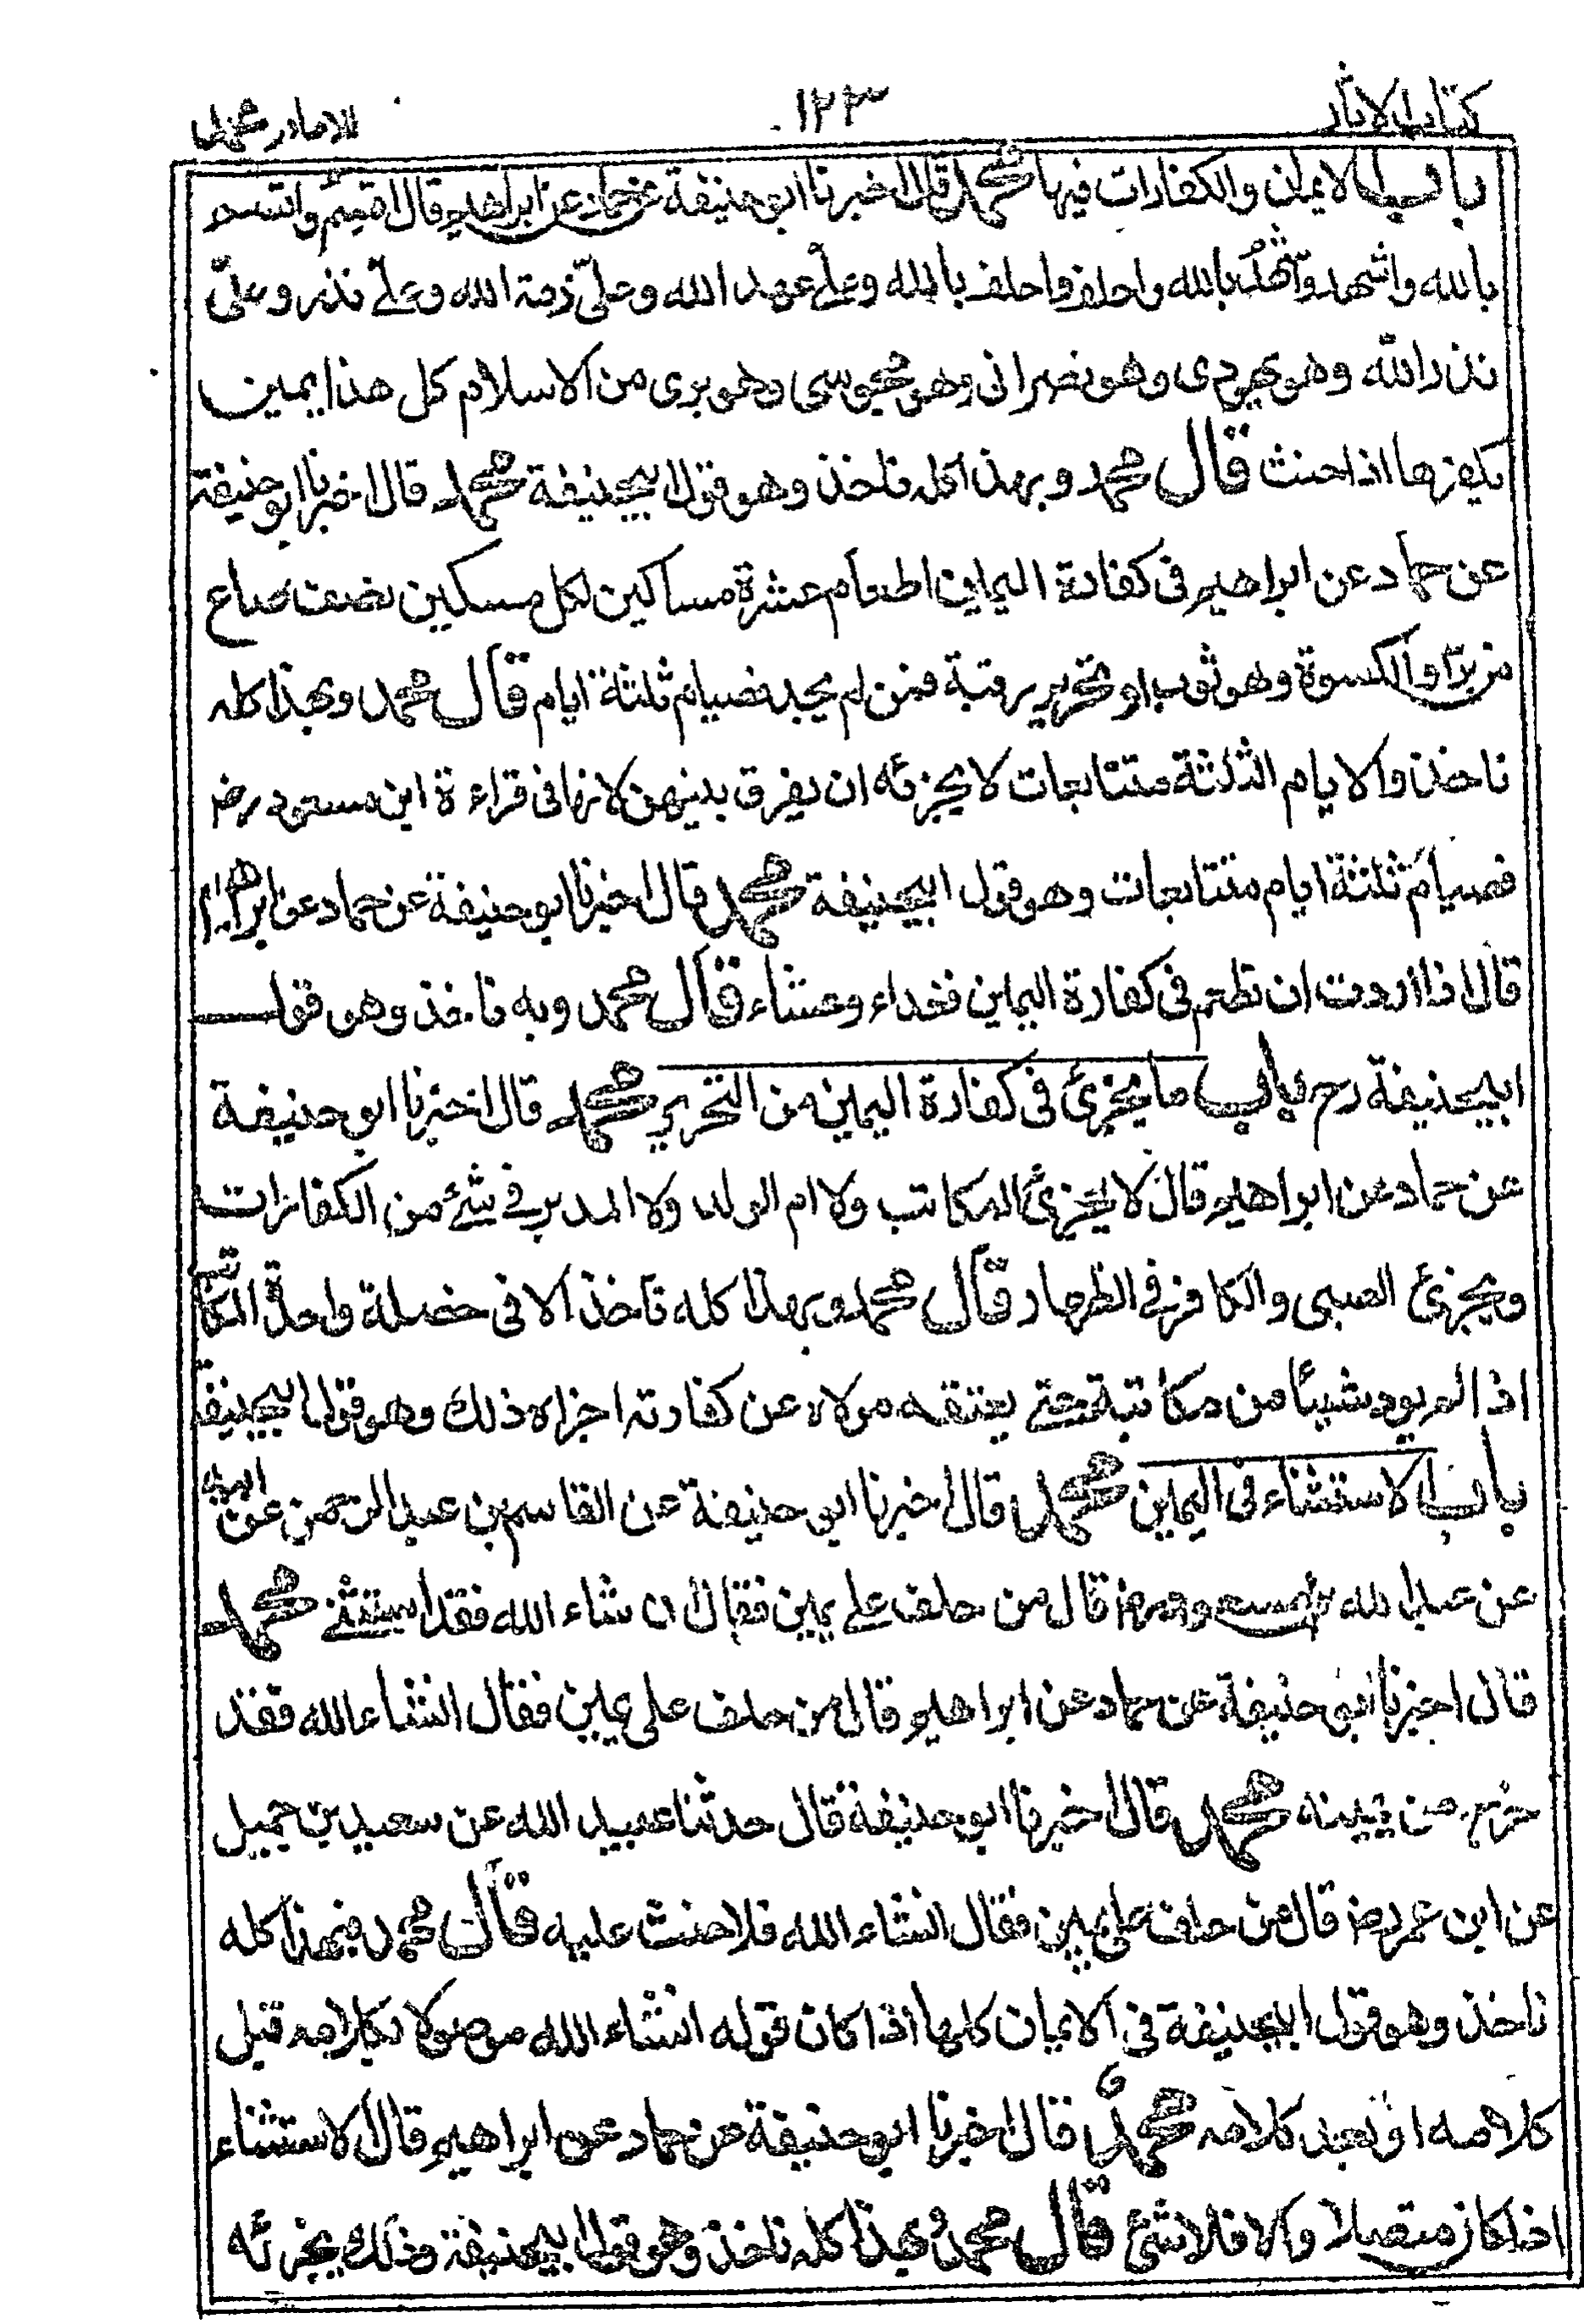 كتاب الآثار ١٢٣ للامام محمد
باب الايمان والكفارات فيها محمد قال اخبرنا ابو حنيفة عن حماد عن ابراهيم قال اقسم واقسم
بالله واشهد واشهد بالله واحلف واحلف بالله وعلىّ عهد الله وعلىّ ذمة الله وعلىّ نذر وعلىّ
نذر الله وهو يهودى وهو نصرانى وهو مجوسى وهو برى من الاسلام كل هذا يمين
يكفرها اذا حنث قال محمد وبهذا كله ناخذ وهو قول ابيحنيفة محمد قال اخبرنا ابو حنيفة
عن حماد عن ابراهيم فى كفارة اليمين اطعام عشرة مساكين لكل مسكين نصف صاع
من بر او الكسوة وهو ثوب او تحرير رقبة فمن لم يجد فصيام ثلثة ايام قال محمد وبهذا كله
ناخذ والايام الثلثة متتابعات لا يجزئه ان يفرق بينهن لانها فى قراءة ابن مسعود رض
فصيام ثلثة ايام متتابعات وهو قول ابيحنيفة محمد قال اخبرنا ابو حنيفة عن حماد عن ابراهيم
قال اذا اردت ان تطعم فى كفارة اليمين فغداء وعشاء قال محمد وبه ناخذ وهو قول
ابيحنيفة رح باب ما يجزئ فى كفارة اليمين من التحرير محمد قال اخبرنا ابو حنيفة
عن حماد عن ابراهيم قال لا يجزئ المكاتب ولا ام الولد ولا المدبر فى شئ من الكفارات
ويجزئ الصبى والكافر فى الظهار قال محمد وبهذا كله ناخذ الا فى خصلة واحدة المكاتب
اذا لم يود شيئا من مكاتبة حتى يعتقه مولاه عن كفارته اجزاه ذلك وهو قول ابيحنيفة
باب الاستثناء فى اليمين محمد قال اخبرنا ابو حنيفة عن القاسم بن عبد الرحمن عن ابيه
عن عبد الله بن مسعود رض قال من حلف على يمين فقال ان شاء الله فقد استثنى محمد
قال اخبرنا ابو حنيفة عن حماد عن ابراهيم قال من حلف على يمين فقال انشاء الله فقد
خرج من يمينه محمد قال اخبرنا ابو حنيفة قال حدثنا عبيد الله عن سعيد بن جميل
عن ابن عمر رض قال من حلف على يمين فقال انشاء الله فلا حنث عليه قال محمد فبهذا كله
ناخذ وهو قول ابيحنيفة فى الايمان كلها اذا كان قوله انشاء الله موصولا بكلامه قبل
كلامه او بعد كلامه محمد قال اخبرنا ابو حنيفة عن حماد عن ابراهيم قال الاستثناء
اذا كان متصلا والا فلا شئ قال محمد وبهذا كله ناخذ وهو قول ابيحنيفة وذلك يجزئه